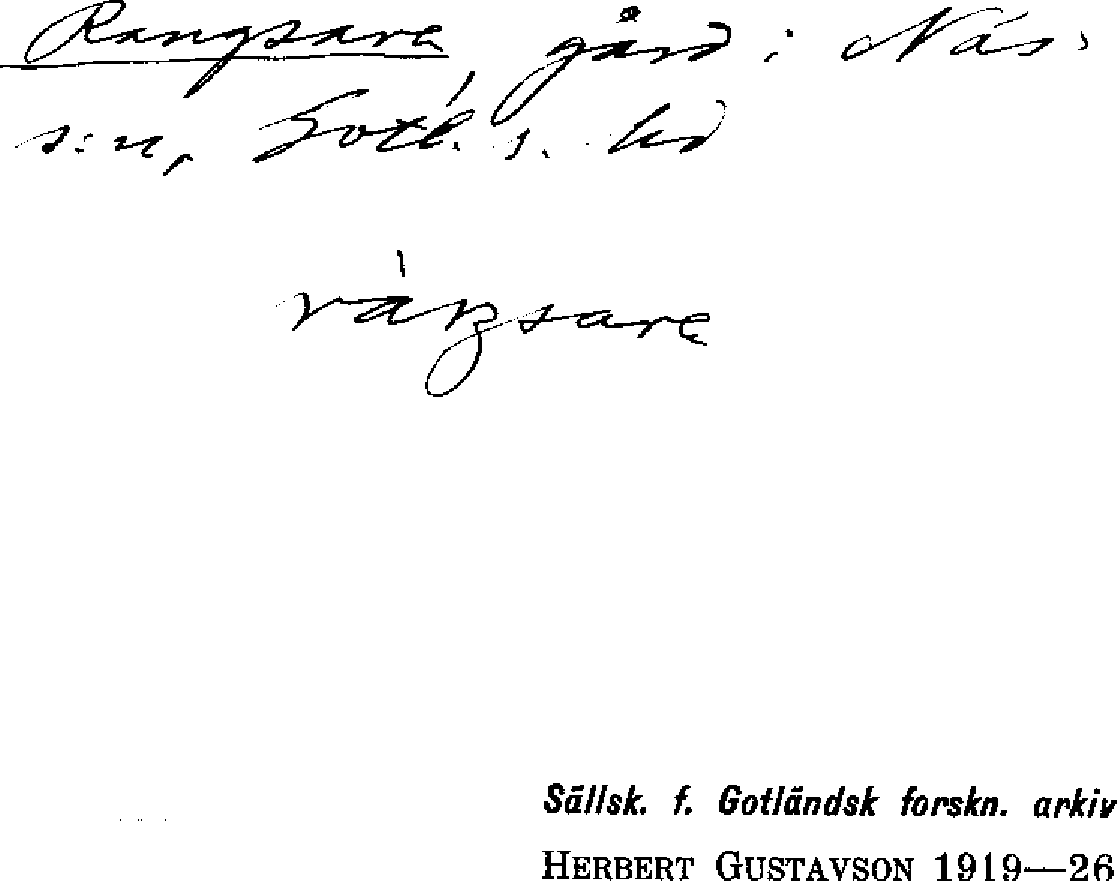 Rangsare, gård i Näs
s:n, Gotl. s. hd
ráŋsare
Sällsk. f. Gotländsk forskn. arkiv
HERBERT GUSTAVSON 1919—26